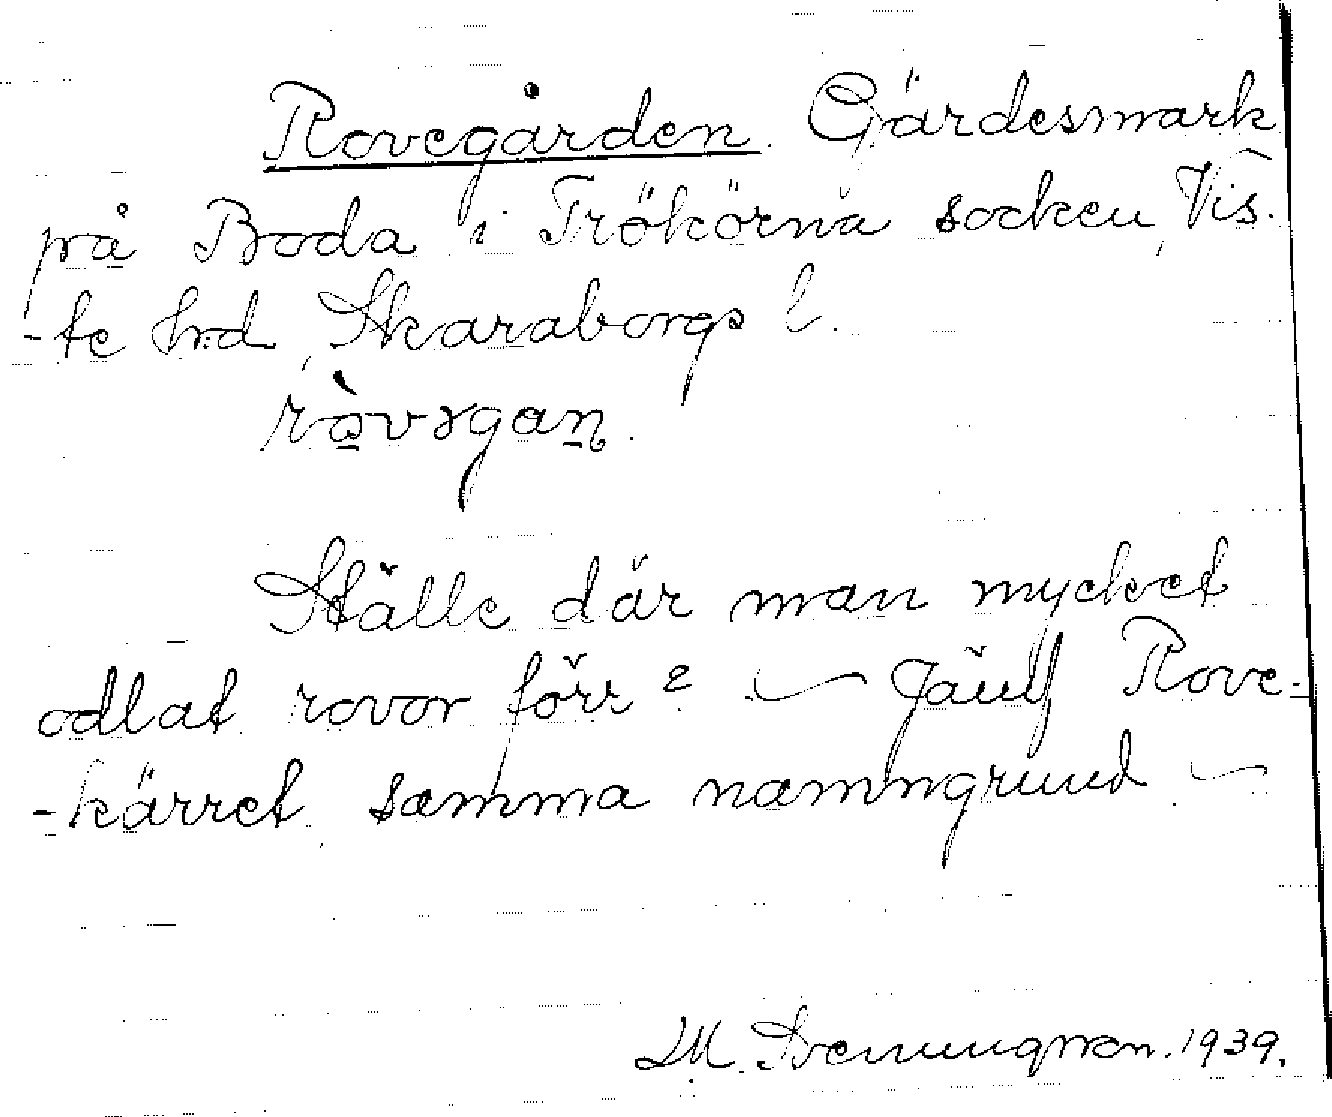 Rovegården. Gärdesmark
på Boda i Trökörna socken, Vis-
-te hrd, Skaraborgs l.
ràvɤgan.
Ställe där man mycket
odlat rovor förr? — Jämf Rove-
-kärret, samma namngrund —
M. Svenungsson. 1939.